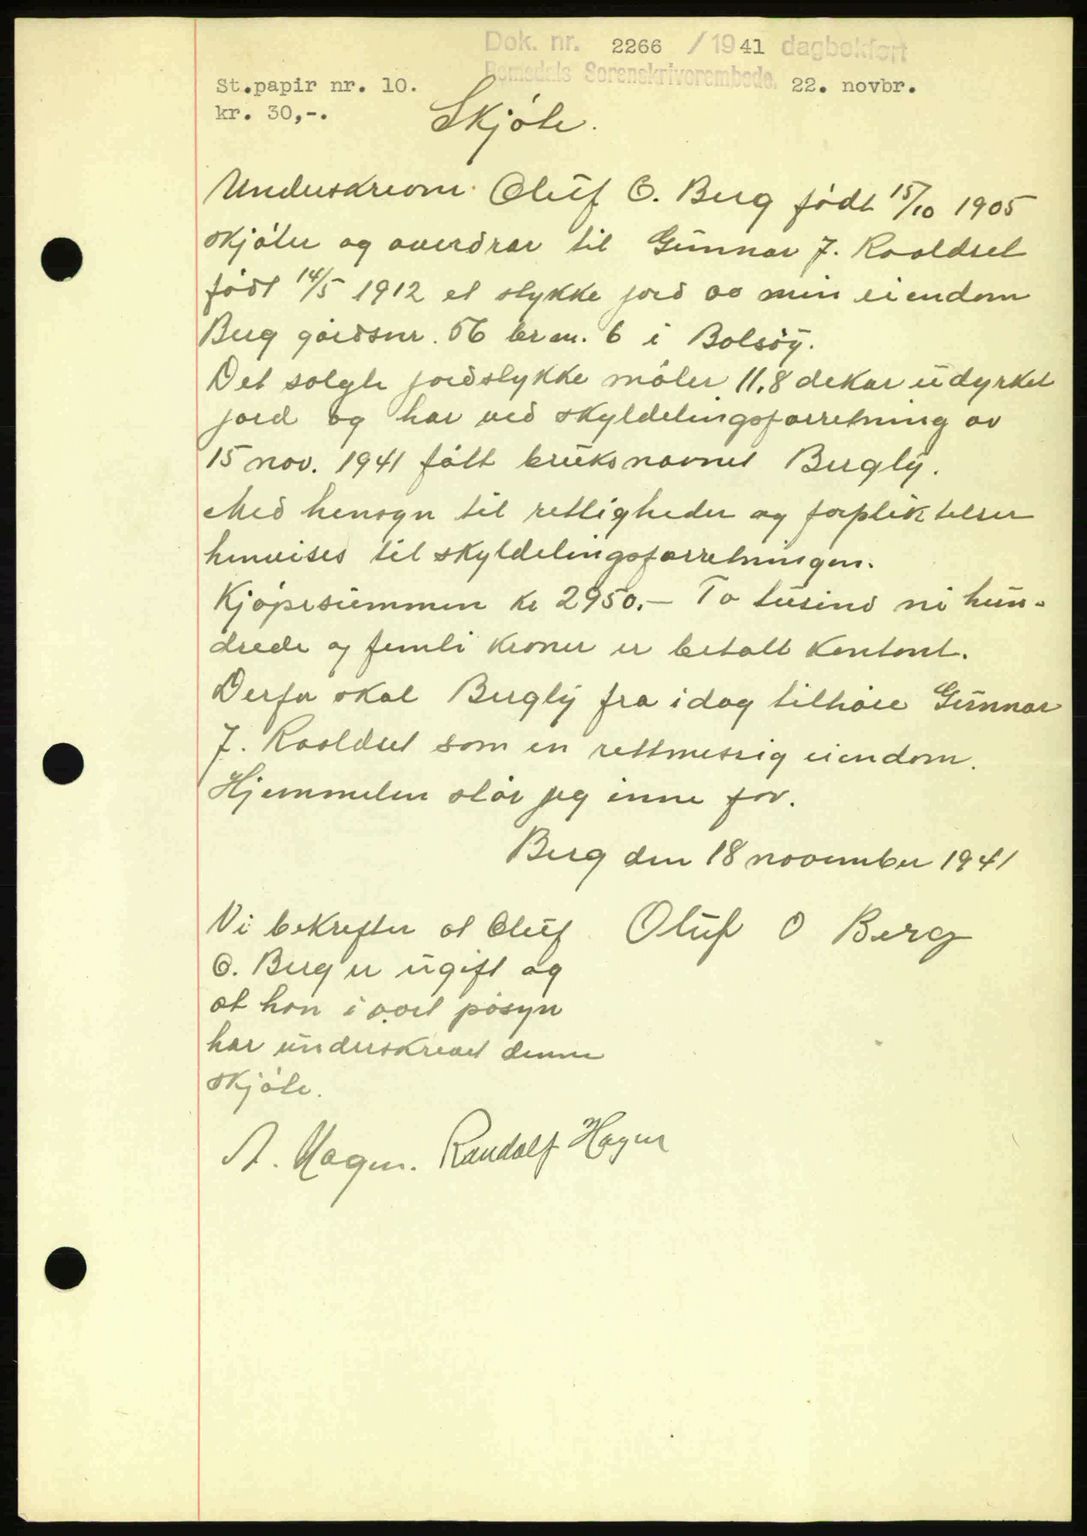 Dok. nr. 2266 / 1941 dagbokført
Romsdals Sorenskriverembede.
St.papir nr. 10. 22. novbr.
kr. 30,-.
Skjöte.
Underskrevne Oluf O. Berg födt 15/10 1905
skjöter og overdrar til Gunnar J. Roaldset
födt 14/5 1912 et stykke jord av min eiendom
Berg gårdsnr. 56 br.nr. 6 i Bolsöy.
Det solgte jordstykke måler 11,8 dekar udyrket
jord og har ved skyldelingsforretning av
15 nov. 1941 fått bruksnavnet Bergly.
Med hensyn til rettigheder og forpliktelser
henvises til skyldelingsforretningen.
Kjöpesummen kr 2950.- To tusind ni hun-
drede og femti kroner er betalt kontant.
Derfor skal Bergly fra idag tilhöre Gunnar
J. Roaldset som en rettmessig eiendom.
Hjemmelen står jeg inne for.
Berg den 18 november 1941
Oluf O Berg
Vi bekrefter at Oluf
O. Berg er ugift og
at han i vårt påsyn
har underskrevet denne
skjöte.
A. Hagen. Randolf Hagen